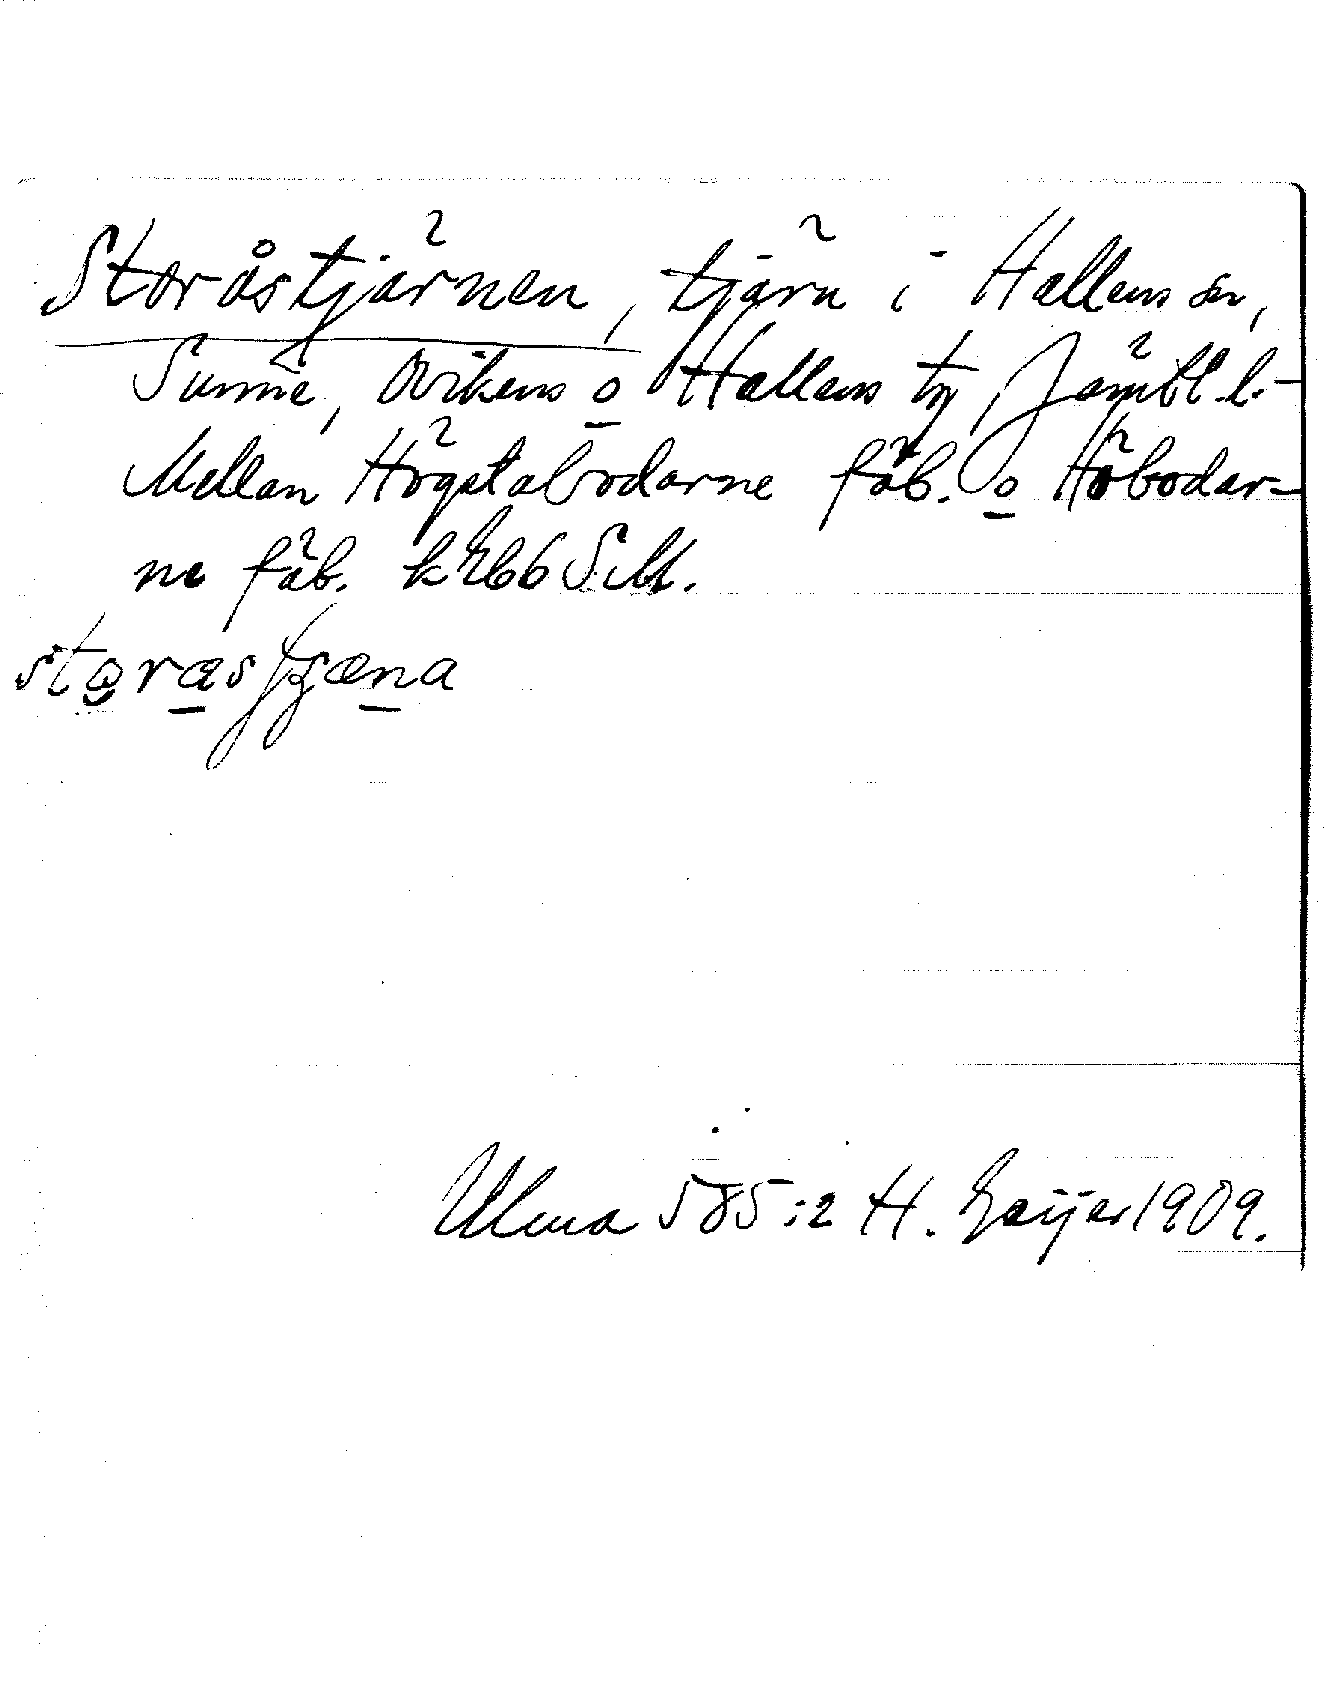 Storåstjärnen, tjärn i Hallens sn,
Sunne, Ovikens o Hallens tg, Jämtl. l.
Mellan Högstabodarne fäb. o Höbodar-
ne fäb. k 266 S.M.
Ulma 585:2 H. Geijer 1909.